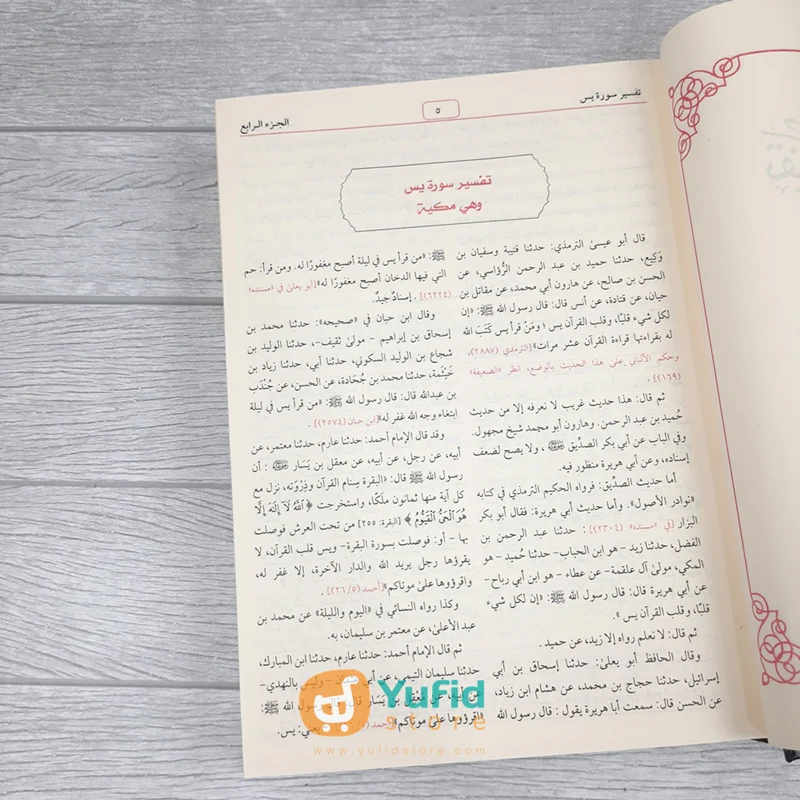 تفسير سورة يس
٥
الجزء الرابع
تفسير سورة يس
وهي مكية
قال أبو عيسىٰ الترمذي: حدثنا قتيبة وسفيان بن
وَكِيع، حدثنا حميد بن عبد الرحمن الرُّؤاسي، عن
الحسن بن صالح، عن هارون أبي محمد، عن مقاتل بن
حيان، عن قتادة، عن أنس قال: قال رسول الله ﷺ: «إن
لكل شيء قلبًا، وقلب القرآن يس ؛ ومَنْ قرأ يس كَتَبَ الله
له بقراءتها قراءة القرآن عشر مرات»[الترمذي (٢٨٨٧)،
وحكم الألباني علىٰ هذا الحديث بالوضع، انظر «الضعيفة»
(١٦٩)] .
ثم قال: هذا حديث غريب لا نعرفه إلا من حديث
حُميد بن عبد الرحمن. وهارون أبو محمد شيخ مجهول.
وفي الباب عن أبي بكر الصدِّيق ﷺ ، ولا يصح لضعف
إسناده، وعن أبي هريرة منظور فيه.
أما حديث الصدِّيق: فرواه الحكيم الترمذي في كتابه
«نوادر الأصول». وأما حديث أبي هريرة: فقال أبو بكر
البزار [في «مسنده» (٢٣٠٤)] : حدثنا عبد الرحمن بن
الفضل، حدثنا زيد – هو ابن الحباب– حدثنا حُميد – هو
المكي، مولىٰ آل علقمة– عن عطاء – هو ابن أبي رباح–
عن أبي هريرة قال: قال رسول الله ﷺ: «إن لكل شيء
قلبًا، وقلب القرآن يس ».
ثم قال: لا نعلم رواه إلا زيد، عن حميد .
وقال الحافظ أبو يعلىٰ: حدثنا إسحاق بن أبي
إسرائيل، حدثنا حجاج بن محمد، عن هشام ابن زياد،
عن الحسن قال: سمعت أبا هريرة يقول : قال رسول الله
ﷺ: «من قرأ يس في ليلة أصبح مغفورًا له. ومن قرأ: حم
التي فيها الدخان أصبح مغفورًا له»[أبو يعلىٰ في «مسنده»
(٦٢٢٤)] . إسنادٌ جيدٌ.
وقال ابن حبان في «صحيحه»: حدثنا محمد بن
إسحاق بن إبراهيم – مولىٰ ثقيف–، حدثنا الوليد بن
شجاع بن الوليد السكوني، حدثنا أبي، حدثنا زياد بن
خَيْثَمة، حدثنا محمد بن جُحَادة، عن الحسن، عن جُنْدَب
بن عبدالله قال: قال رسول الله ﷺ: «من قرأ يس في ليلة
ابتغاء وجه الله غفر له»[ابن حبان (٢٥٧٤)] .
وقد قال الإمام أحمد: حدثنا عارم، حدثنا معتمر، عن
أبيه، عن رجل، عن أبيه، عن معقل بن يَسَار : أن
رسول الله ﷺ قال: «البقرة سِنام القرآن وذِرْوَته، نزل مع
كل آية منها ثمانون ملَكًا، واستخرجت ﴿ٱللَّهُ لَآ إِلَٰهَ إِلَّا
هُوَ ٱلْحَىُّ ٱلْقَيُّومُ﴾ [البقرة: ٢٥٥] من تحت العرش فوصلت
بها – أو: فوصلت بسورة البقرة– ويس قلب القرآن، لا
يقرؤها رجل يريد الله والدار الآخرة، إلا غفر له،
واقرؤوها علىٰ موتاكم»[أحمد (٢٦/٥)] .
وكذا رواه النسائي في «اليوم والليلة» عن محمد بن
عبد الأعلىٰ، عن معتمر بن سليمان، به.
ثم قال الإمام أحمد: حدثنا عارم، حدثنا ابن المبارك،
حدثنا سليمان التيمي، عن أبي – وليس بالنهدي–
عن أبيه، عن معقل بن يَسَار قال: قال رسول الله ﷺ:
«اقرؤوها علىٰ موتاكم»[أحمد يعني: يس.
Yufid
store
www.yufidstore.com